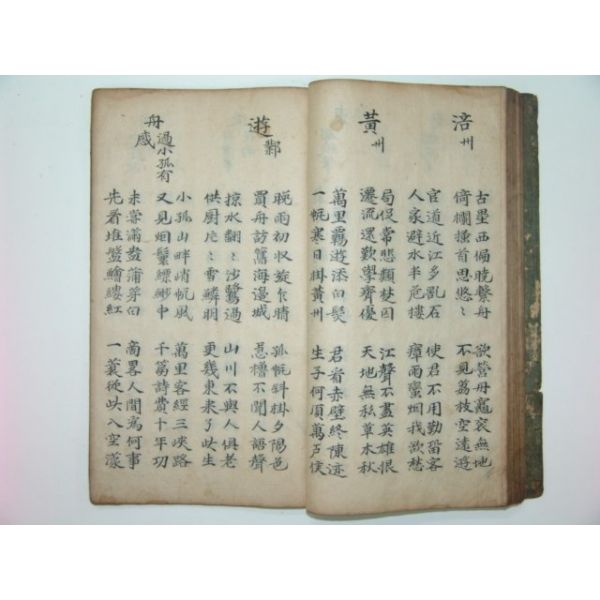 涪州
古壘西偏曉繫舟
倚欄搔首思悠〻
欲營丹竈竟無地
不見荔枝空遠遊
官道近江多亂石
人家避水半危樓
使君不用勤留客
瘴雨蠻烟我欲愁
黃州
局促常悲類楚囚
遷流還歎學齊優
江聲不盡英雄恨
天地無私草木秋
萬里羈遊添白髮
一帆寒日掛黃州
君看赤壁終陳迹
生子何須萬戶侯
遊鄞
晚雨初収旋作晴
買舟訪舊海邊城
孤帆斜掛夕陽色
急櫓不聞人語聲
掠水翻〻沙鷺過
供廚片〻雪鱗明
山川不與人俱老
更幾東來了此生
舟過小孤有感
小孤山畔峭帆風
又見烟鬟縹緲中
萬里客經三峽路
千篇詩費十年功
未嘗滿箸蒲芽白
先看堆盤鱠縷紅
商畧人間爲何事
一蓑從此入空濛